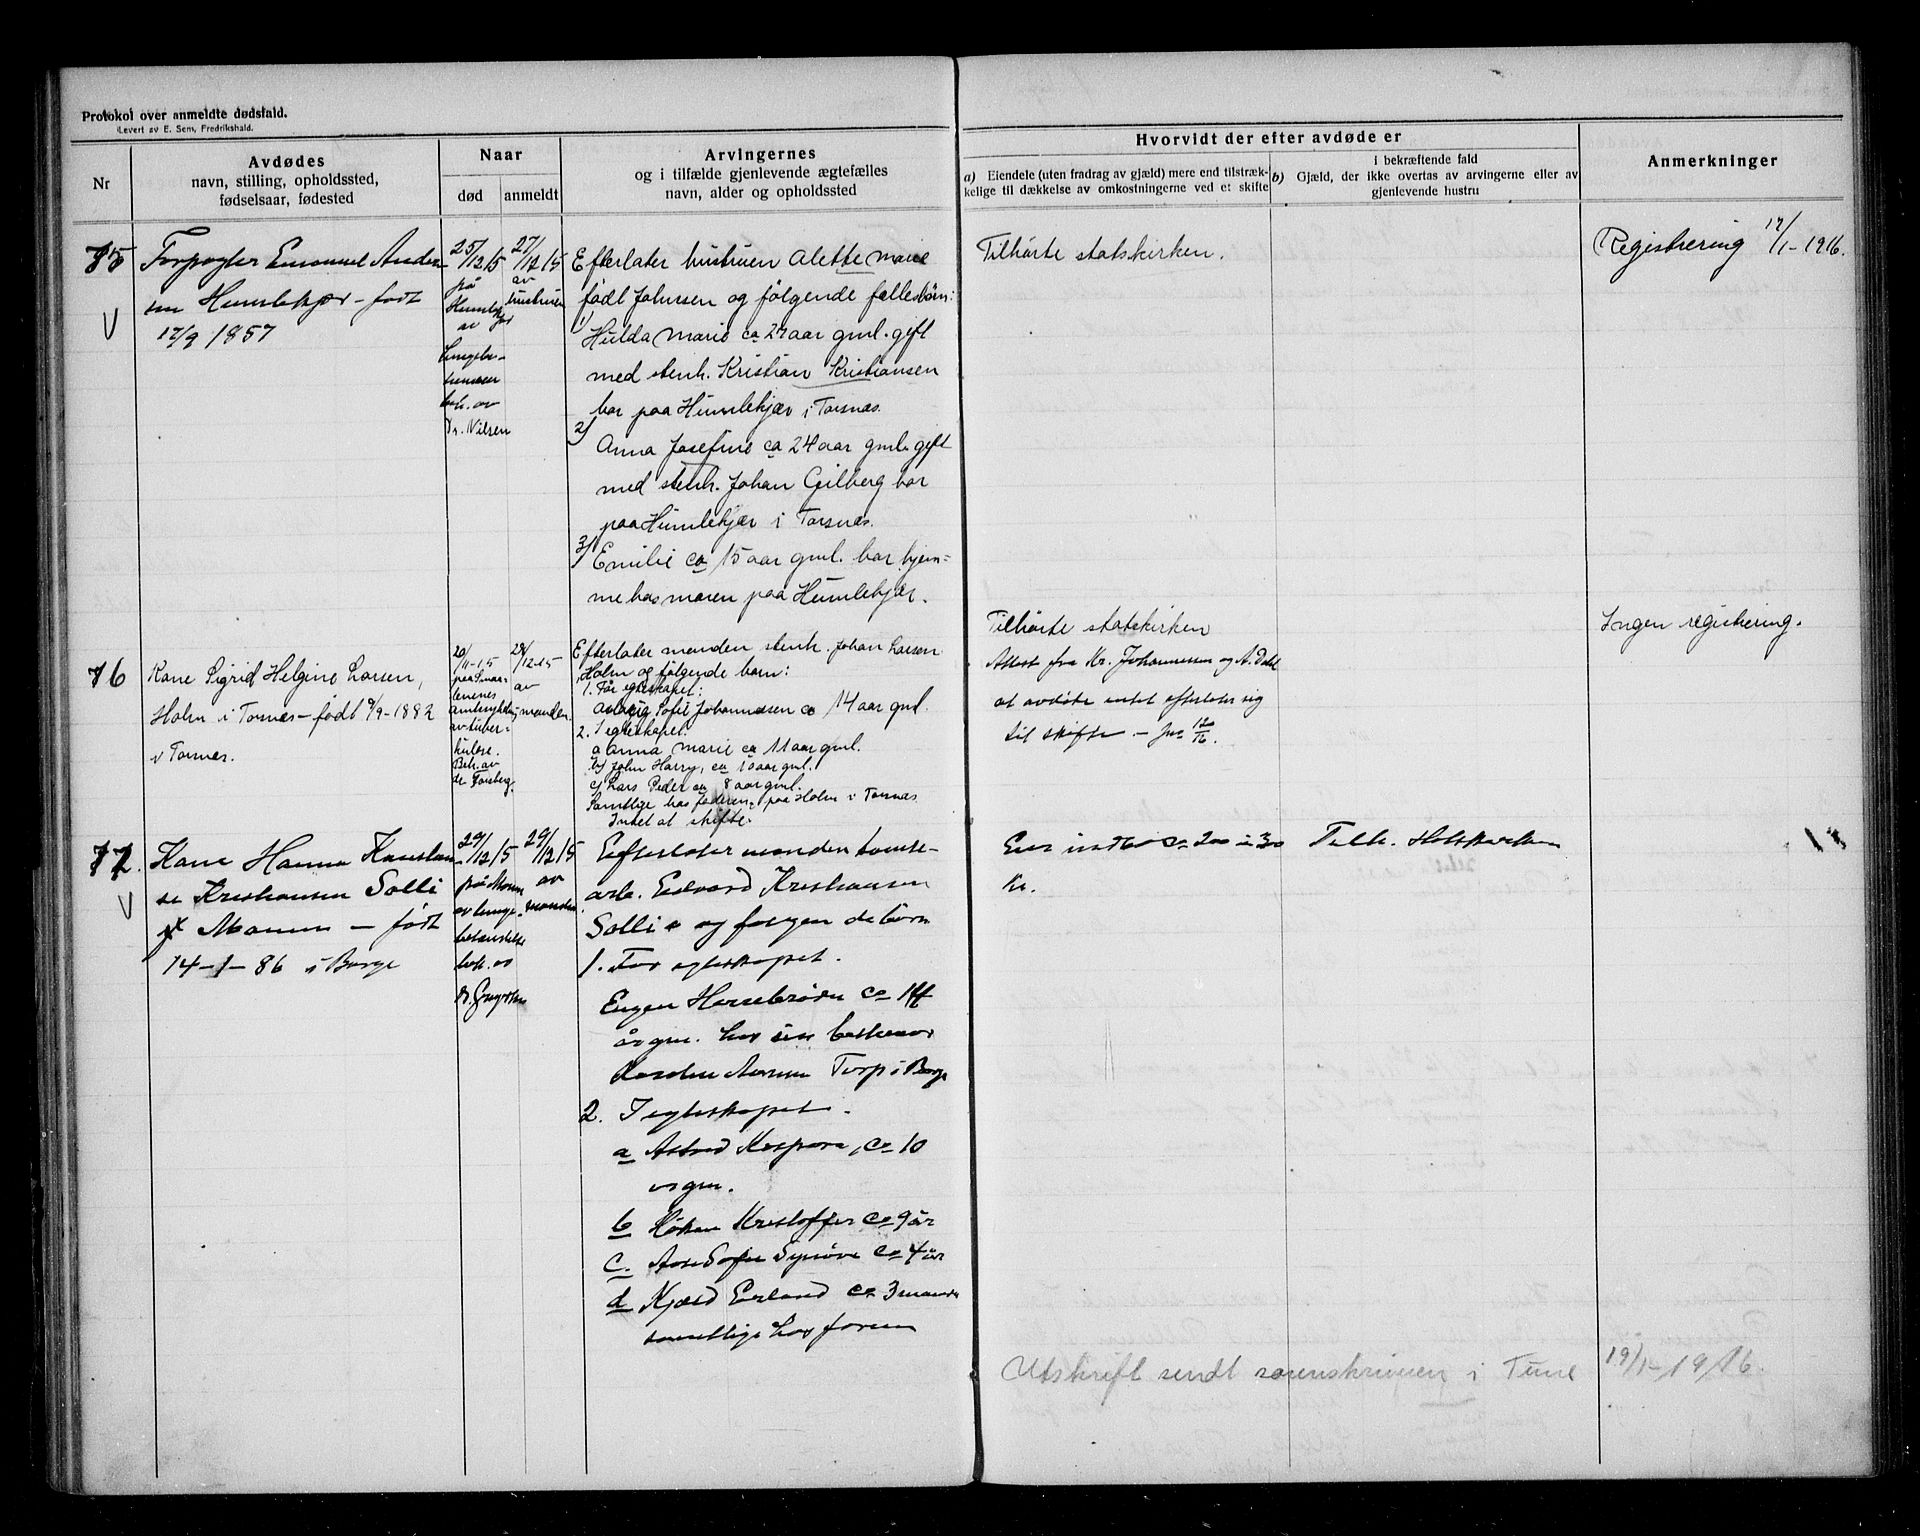 Protokol over anmeldte dødsfald.
Levert av E. Sem, Fredrikshald.
Nr
Avdødes
navn, stilling, opholdssted,
fødselsaar, fødested
Naar
død
anmeldt
Arvingernes
og i tilfælde gjenlevende ægtefælles
navn, alder og opholdssted
Hvorvidt der efter avdøde er
a) Eiendele (uten fradrag av gjæld) mere end tilstræk-
kelige til dækkelse av omkostningerne ved et skifte
i bekræftende fald
b) Gjæld, der ikke overtas av arvingerne eller av
gjenlevende hustru
Anmerkninger
75
Forpagter Emanuel Ander-
sen Humlekjær - født
17/9 1857
25/12 15
på
Humlekjær
av
lungebe-
tennelse
beh. av
Dr. Nilsen
27/12 15
av
hustruen
Efterlater hustruen Alette Marie
født Johnsen og følgende fællesbørn:
1) Hulda Marie ca 27 aar gml. gift
med stenh. Kristian Kristiansen
bor paa Humlekjær i Torsnæs.
2) Anna Josefine ca 24 aar gml. gift
med stenh. Johan Gilberg bor
paa Humlekjær i Torsnæs.
3) Emilie ca 15 aar gml. bor hjem-
me hos moren paa Humlekjær.
Tilhørte statskirken.
Registrering 17/1-1916.
76
Kone Sigrid Helgine Larsen,
Holm i Torsnes - født 9/9-1882
i Torsnes.
20/11-15
paa Smaa-
lenenes
amtssykehus
av tuber-
kulose.
Beh. av
dr Forsberg.
28/12-15
av
manden
Efterlater manden stenh. Johan Larsen
Holm og følgende barn:
1. Før egteskapet:
Sofie Johannesen ca 14 aar gml.
2. I egteskapet:
a Anna Marie ca 11 aar gml.
b) John Harry, ca 10 aar gml.
c) Lars Peder ca 8 aar gml.
Samtlige hos faderen paa Holm i Torsnæs
Intet at skifte.
Tilhørte statskirken
Attest fra Kr. Johannessen og A. Dahl
at avdøde intet efterlater sig
til skifte.
Ingen registrering.
77.
Kone Hanna
Kristiansen Solli
Moum - født
14-1-86 i Borge
29/12 15
på Moum
av lunge-
betændelse
beh. av
29/12 15
av
manden
Efterlater manden tomte-
arb. Edvard Kristiansen
Solli og følgende børn
1. Før egteskapet.
Eugen ca 14
år gm. hos sin bestemor
Torp i Borge
2. I egteskapet.
a Astrid Kaspara, ca 10
år gm.
b Håkon Kristoffer ca 9 år
c. Aase Sofie Synøve ca 4 år
d Kjæld Erland ca 3 maaneder
samtlige hos faren
Eier indbo ca 200 à 300
kr.
Tilh. statskirken
Utskrift sendt sorenskriveren i Tune 19/1-1916.